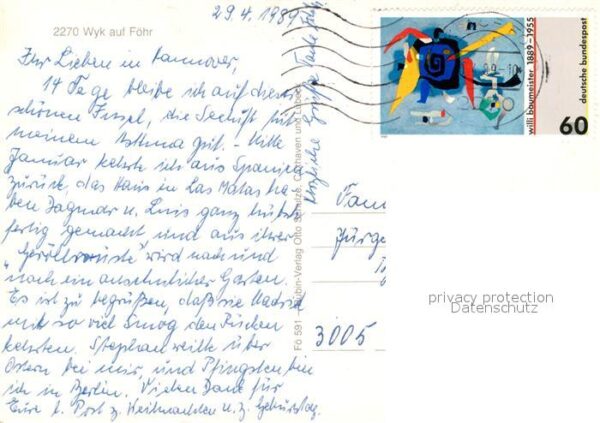 29.4.1989
2270 Wyk auf Föhr
Ihr Lieben in Hannover,
14 Tage bleibe ich auf dieser
schönen Insel, die Seeluft tut
meinem Asthma gut. - Mitte
Januar kehrte ich aus Spanien
zurück, das Haus in Las Matas ha-
ben Dagmar u. Luis ganz hübsch
fertig gemacht und aus ihrer
"Geröllwüste" wird nach und
nach ein ansehnlicher Garten.
Es ist zu begrüßen, daß sie Madrid
mit so viel Smog den Rücken
kehrten. Stephan weilte über
Ostern bei mir, und Pfingsten bin
ich in Berlin. Vielen Dank für
Eure l. Post z. Weihnachten u. z. Geburtstag.
Herzliche Grüße Tante
Fö 591 Schöning-Verlag Otto Cuxhaven und Lübeck
Fam
Jürge
3005
willi baumeister 1889-1955
deutsche bundespost
60
privacy protection
Datenschutz